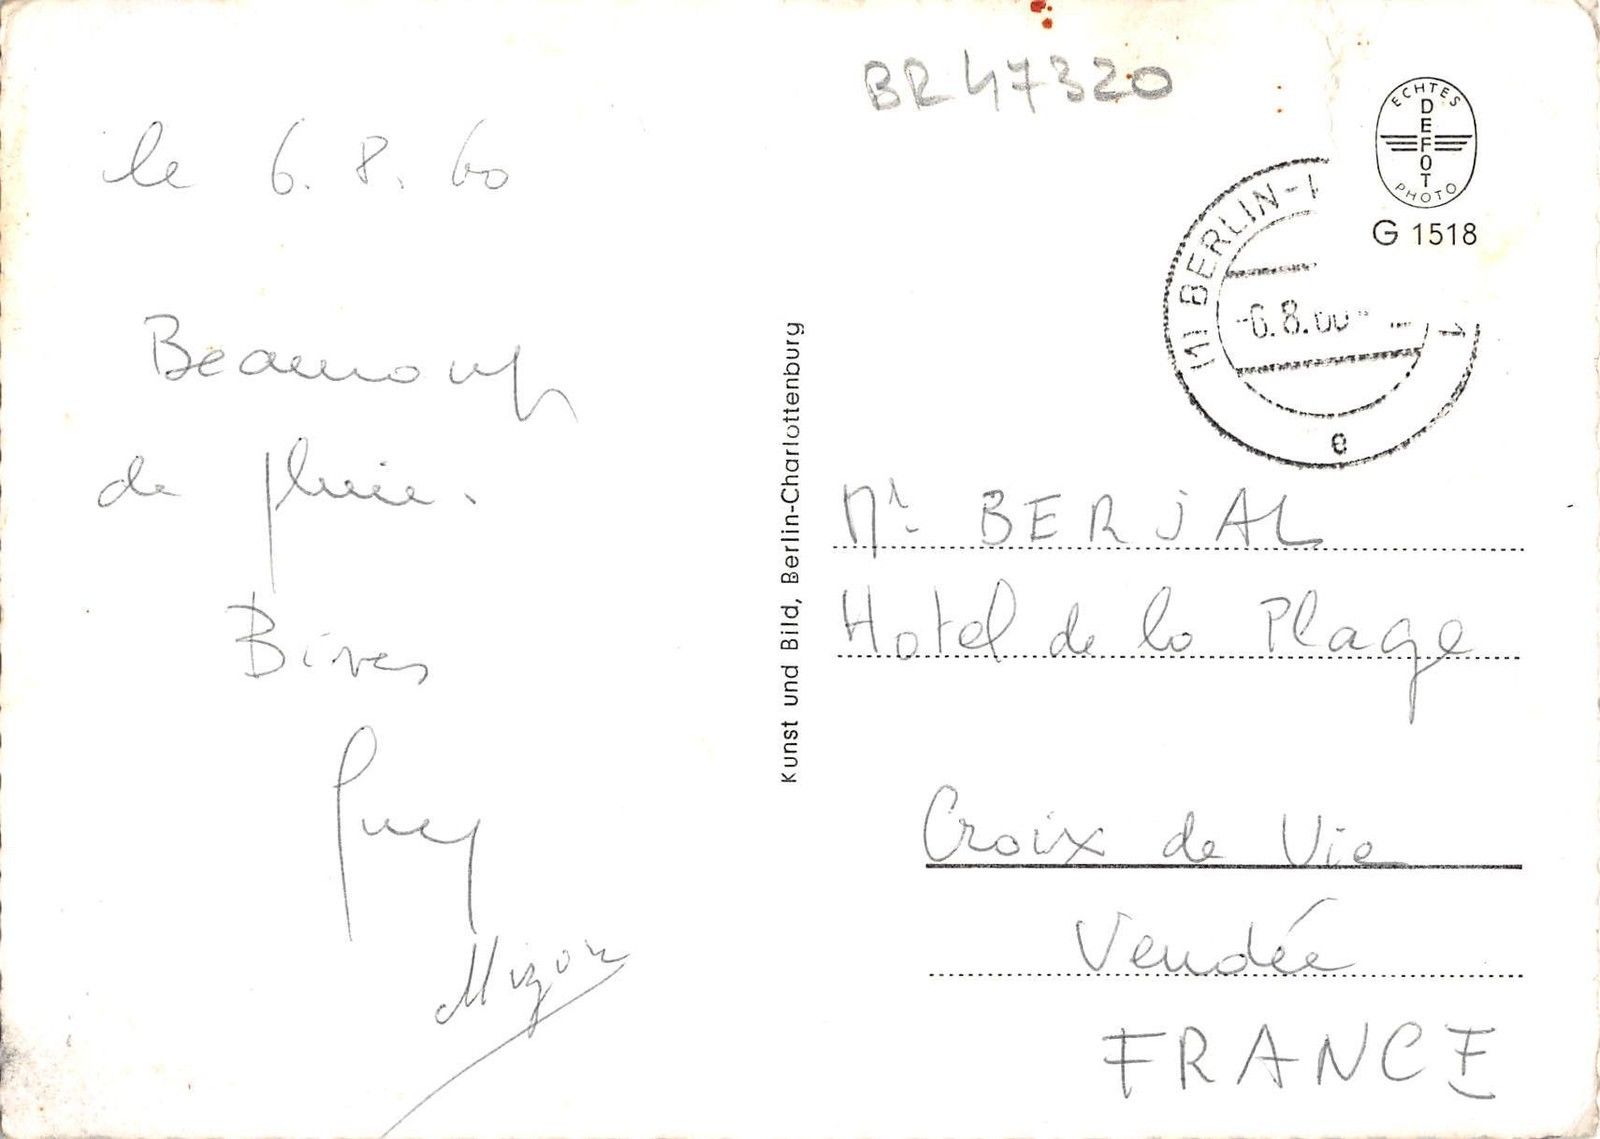 le 6.8.60
Beaucoup
de pluie.
Bises
Guy
BR47320
ECHTES
DEFOT
PHOTO
G 1518
(1) BERLIN-
-6.8.60
e
Kunst und Bild, Berlin-Charlottenburg
Mr. BERJAL
Hotel de la Plage
Croix de Vie
Vendée
FRANCE